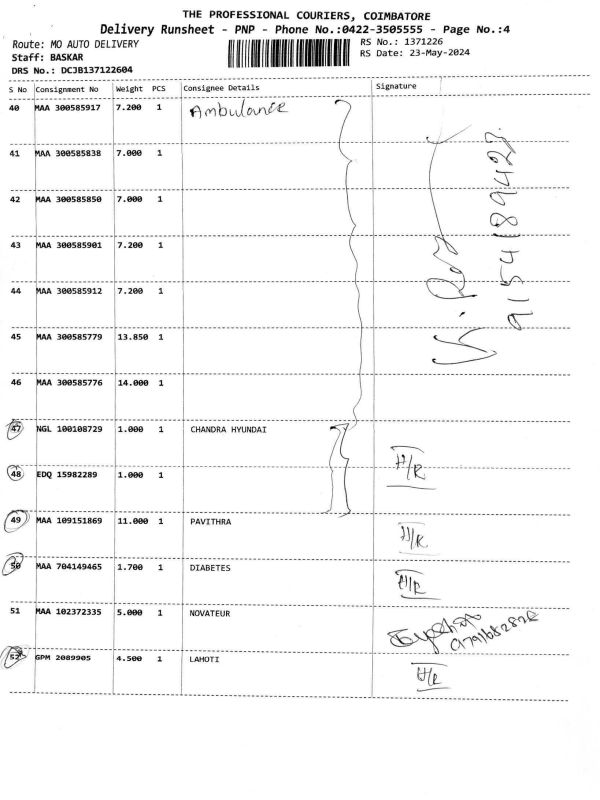 THE PROFESSIONAL COURIERS, COIMBATORE
Delivery Runsheet - PNP - Phone No.:0422-3505555 - Page No.:4
Route: MO AUTO DELIVERY
RS No.: 1371226
Staff: BASKAR
RS Date: 23-May-2024
DRS No.: DCJB137122604
S No Consignment No Weight PCS Consignee Details Signature
40 MAA 300585917 7.200 1 Ambulance
41 MAA 300585838 7.000 1
42 MAA 300585850 7.000 1
43 MAA 300585901 7.200 1
44 MAA 300585912 7.200 1
45 MAA 300585779 13.850 1
46 MAA 300585776 14.000 1
9154189423
47 NGL 100108729 1.000 1 CHANDRA HYUNDAI
48 EDQ 15982289 1.000 1 H/R
49 MAA 109151869 11.000 1 PAVITHRA H/R
50 MAA 704149465 1.700 1 DIABETES H/R
51 MAA 102372335 5.000 1 NOVATEUR
52 GPM 2089905 4.500 1 LAHOTI H/R